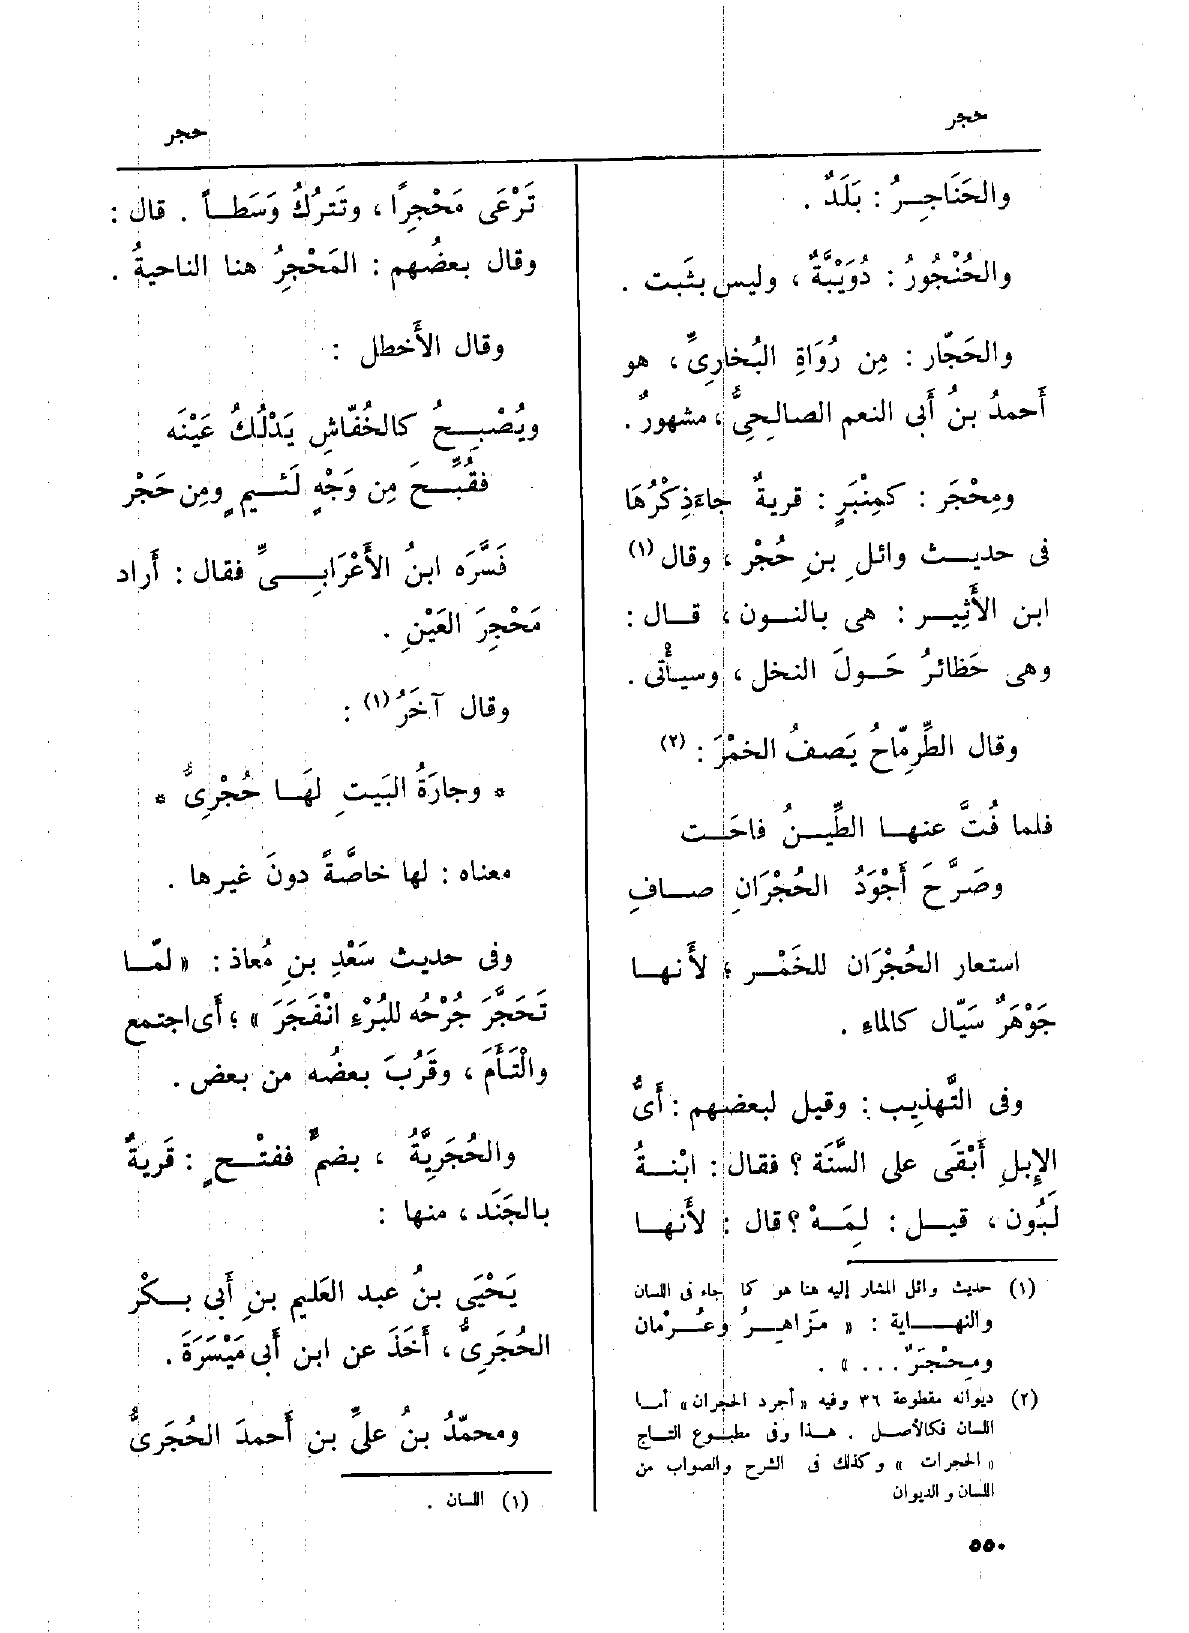 حجر
حجر
والحَنَاجِرُ : بَلَدٌ .
والحُنْجُورُ : دُوَيْبَّةٌ ، وليس بثَبت .
والحَجّار : مِن رُوَاةِ البُخارِىِّ ، هو
أَحمدُ بنُ أَبى النعم الصالحِىُّ ، مشهورٌ .
ومِحْجَر : كمِنْبَرٍ : قريةٌ جاءَ ذِكْرُهَا
فى حديث وائلِ بنِ حُجْر ، وقال (١)
ابن الأَثِير : هى بالنون ، قال :
وهى حَظائرُ حَولَ النخل ، وسيأْتى .
وقال الطِّرِمّاحُ يَصفُ الخمْرَ : (٢)
فلما فُتَّ عنها الطِّينُ فاحَت
وصَرَّحَ أَجْوَدُ الحُجْرَانِ صافِ
استعار الحُجْرَان للخَمْر ؛ لأَنها
جَوْهَرٌ سَيّال كالماءِ .
وفى التَّهذِيب : وقيل لبعضهم : أَىُّ
الإِبلِ أَبْقَى على السَّنَة ؟ فقال : ابْنةُ
لَبُون ، قيل : لِمَهْ ؟ قال : لأَنها
(١) حديث وائل المشار إليه هنا هو كما جاء فى اللسان
والنهاية : « مزاهرُ وعُرْمان
ومحْجَرٌ ... » .
(٢) ديوانه مقطوعة ٣٦ وفيه « أجرد الحجران » أما
اللسان فكالأصل . هذا وفى مطبوع التاج
« الحجرات » وكذلك فى الشرح والصواب من
اللسان والديوان
تَرْعَى مَحْجِرًا ، وتَترُكُ وَسَطاً . قال :
وقال بعضُهم : المَحْجِرُ هنا الناحيةُ .
وقال الأَخطل :
ويُصْبِحُ كالخُفّاشِ يَدْلُكُ عَيْنَه
فقُبِّحَ مِن وَجْهٍ لَئيمٍ ومِن حَجْر
فَسَّرَه ابنُ الأَعْرَابِىِّ فقال : أَراد
مَحْجِرَ العَيْنِ .
وقال آخَرُ (١) :
* وجارَةُ البَيتِ لهَا حُجْرِىُّ *
معناه : لها خاصَّةً دونَ غيرها .
وفى حديث سَعْدِ بنِ مُعاذ : « لمّا
تَحَجَّرَ جُرْحُه للبُرْءِ انْفَجَرَ » ؛ أَى اجتمع
والْتَأَمَ ، وقَرُبَ بعضُه من بعض .
والحُجَرِيَّةُ ، بضمٍّ ففتْحٍ : قَريةٌ
بالجَنَد ، منها :
يَحْيَى بنُ عبد العَليم بنِ أَبى بكْر
الحُجَرِىُّ ، أَخَذَ عن ابن أَبى مَيْسَرَةَ .
ومحمّدُ بنُ علىِّ بنِ أَحمدَ الحُجَرِىُّ
(١) اللسان .
٥٥٠